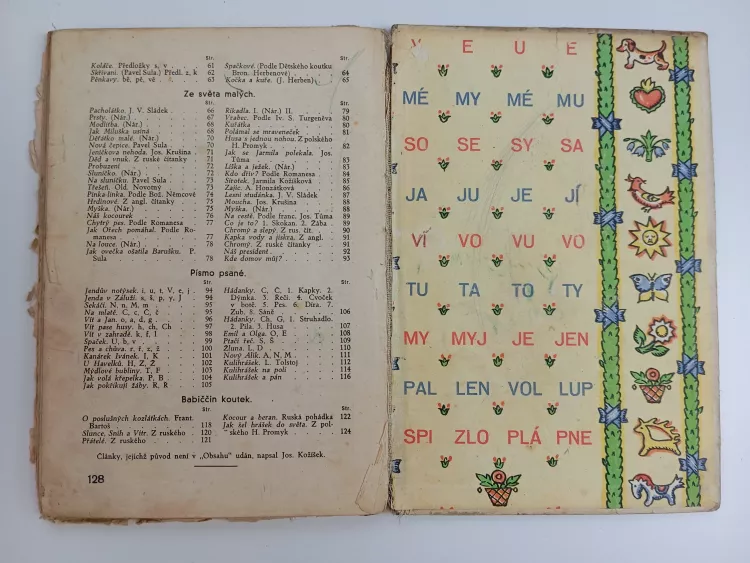 Str.
Koláče. Předložky s, v 61
Skřivani. (Pavel Sula.) Předl. z, k 62
Pěnkavy. bě, pě, vě 63
Str.
Špačkové. (Podle Dětského koutku
Bron. Herbenové) 64
Kočka a kuře. (J. Herben) 65
Ze světa malých.
Str.
Pacholátko. J. V. Sládek 66
Prsty. (Nár.) 67
Modlitba. (Nár.) 68
Jak Miluška usíná 68
Děťátko malé. (Nár.) 70
Nová čepice. Pavel Sula 70
Jeníčkova nehoda. Jos. Krušina 71
Děd a vnuk. Z ruské čítanky 71
Probuzení 72
Sluníčko. (Nár.) 72
Na sluníčko. Pavel Sula 72
Třešeň. Old. Novorný 73
Pinka-linka. Podle Bož. Němcové 74
Hrdinové. Z angl. čítanky 75
Myška. (Nár.) 75
Náš kocourek 76
Chytrý pes. Podle Romanesa 77
Jak Ořech pomáhal. Podle Ro-
manesa 77
Na louce. (Nár.) 78
Jak ovečka ošatila Barušku. P.
Sula 78
Str.
Říkadla. I. (Nár.) II. 79
Vrabec. Podle Iv. S. Turgeněva 80
Kuřátka 80
Polámal se mraveneček 81
Husa s jednou nohou. Z polského
H. Promyk 82
Jak se Jarmila polekala. Jos.
Tůma 83
Liška a ježek. (Nár.) 83
Kdo dřív? Podle Romanesa 84
Sirotek. Jarmila Kožíšková 85
Zajíc. A. Honzátková 86
Lesní studánka. J. V. Sládek 87
Moucha. Jos. Krušina 88
Myška. (Nár.) 88
Na cestě. Podle franc. Jos. Tůma 89
Co je to? 1. Skokan. 2. Žába 89
Chromý a slepý. Z rus. čít. 90
Kapka vody a jiskra. Z angl. 91
Chromý. Z ruské čítanky 91
Náš president 92
Kde domov můj? 93
Písmo psané.
Str.
Jendův notýsek. i, u, t, V, e, j 94
Jenda v Záluží. s, š, p, y, J 94
Sekáči. N, n, M, m 95
Na mlatě. C, c, Č, č 95
Vít a Jan. o, a, d, g 96
Vít pase husy. h, ch, Ch 97
Vít v zahradě. k, f, I 98
Špaček. U, b, v 99
Pes a chůva. r, ř, z, ž 100
Kanárek Ivánek. I, K 101
U Havelků. H, Z, Ž 102
Mýdlové bubliny. T, F 103
Jak volá křepelka. P, B 104
Jak pokřikují žáby. R, Ř 105
Str.
Hádanky. C, Č, 1. Kapky. 2.
Dýmka. 3. Řeči. 4. Cvoček
v botě. 5. Pes. 6. Díra. 7.
Zub. 8. Sáně 106
Hádanky. Ch, G, 1. Struhadlo.
2. Pila. 3. Husa 107
Emil a Olga. O, E 108
Ptačí řeč. S, Š 109
Žluna. L, D 110
Nový Alík. A, N, M 111
Kulihrášek. L. Tolstoj 112
Kulihrášek na poli 114
Kulihrášek a pán 116
Babiččin koutek.
Str.
O poslušných kozlátkách. Frant.
Bartoš 118
Slunce, Sníh a Vítr. Z ruského 120
Přátelé. Z ruského 121
Str.
Kocour a beran. Ruská pohádka 122
Jak šel hrášek do světa. Z pol-
ského H. Promyk 124
Články, jejichž původ není v „Obsahu" udán, napsal Jos. Kožíšek.
128
E U E
MÉ MY MÉ MU
SO SE SY SA
JA JU JE JÍ
VÍ VO VU VO
TU TA TO TY
MY MYJ JE JEN
PAL LEN VOL LUP
SPI ZLO PLÁ PNE